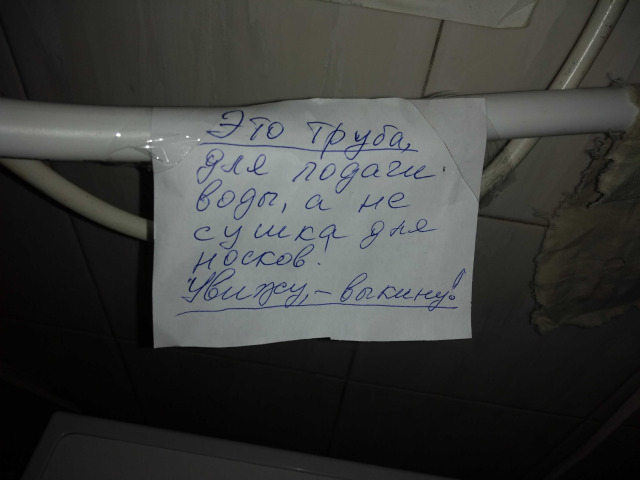 Это труба,
для подачи
воды, а не
сушка для
носков.
Увижу, - выкину!